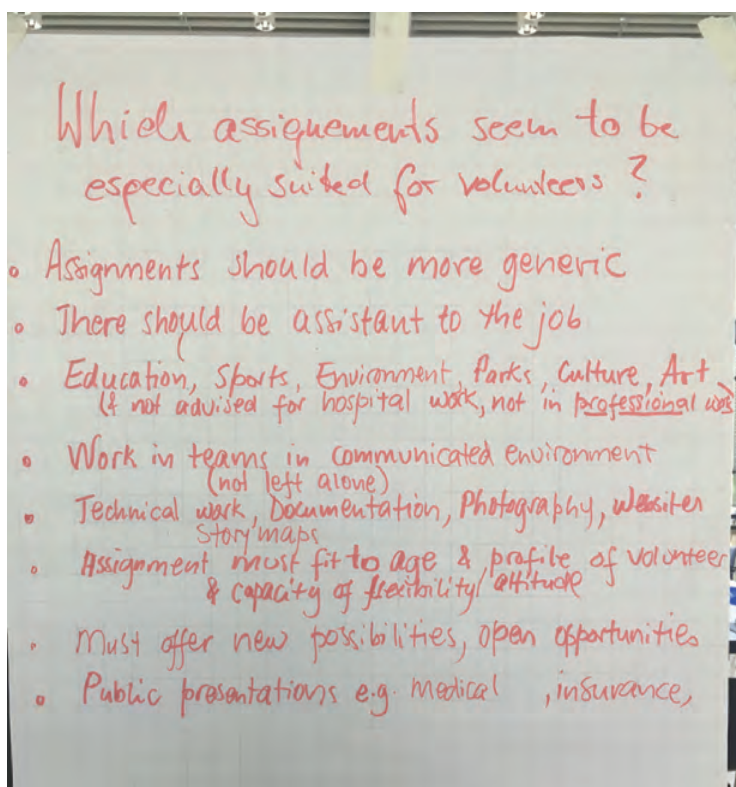 Which assignements seem to be
especially suited for volunteers ?
• Assignments should be more generic
• There should be assistant to the job
• Education, Sports, Environment, Parks, Culture, Art
(& not advised for hospital work, not in professional work
• Work in teams in communicated environment
(not left alone)
• Technical work, Documentation, Photography, Websites
Story maps
• Assignment must fit to age & profile of volunteer
& capacity of flexibility/attitude
• Must offer new possibilities, open opportunities
• Public presentations e.g. medical , insurance,